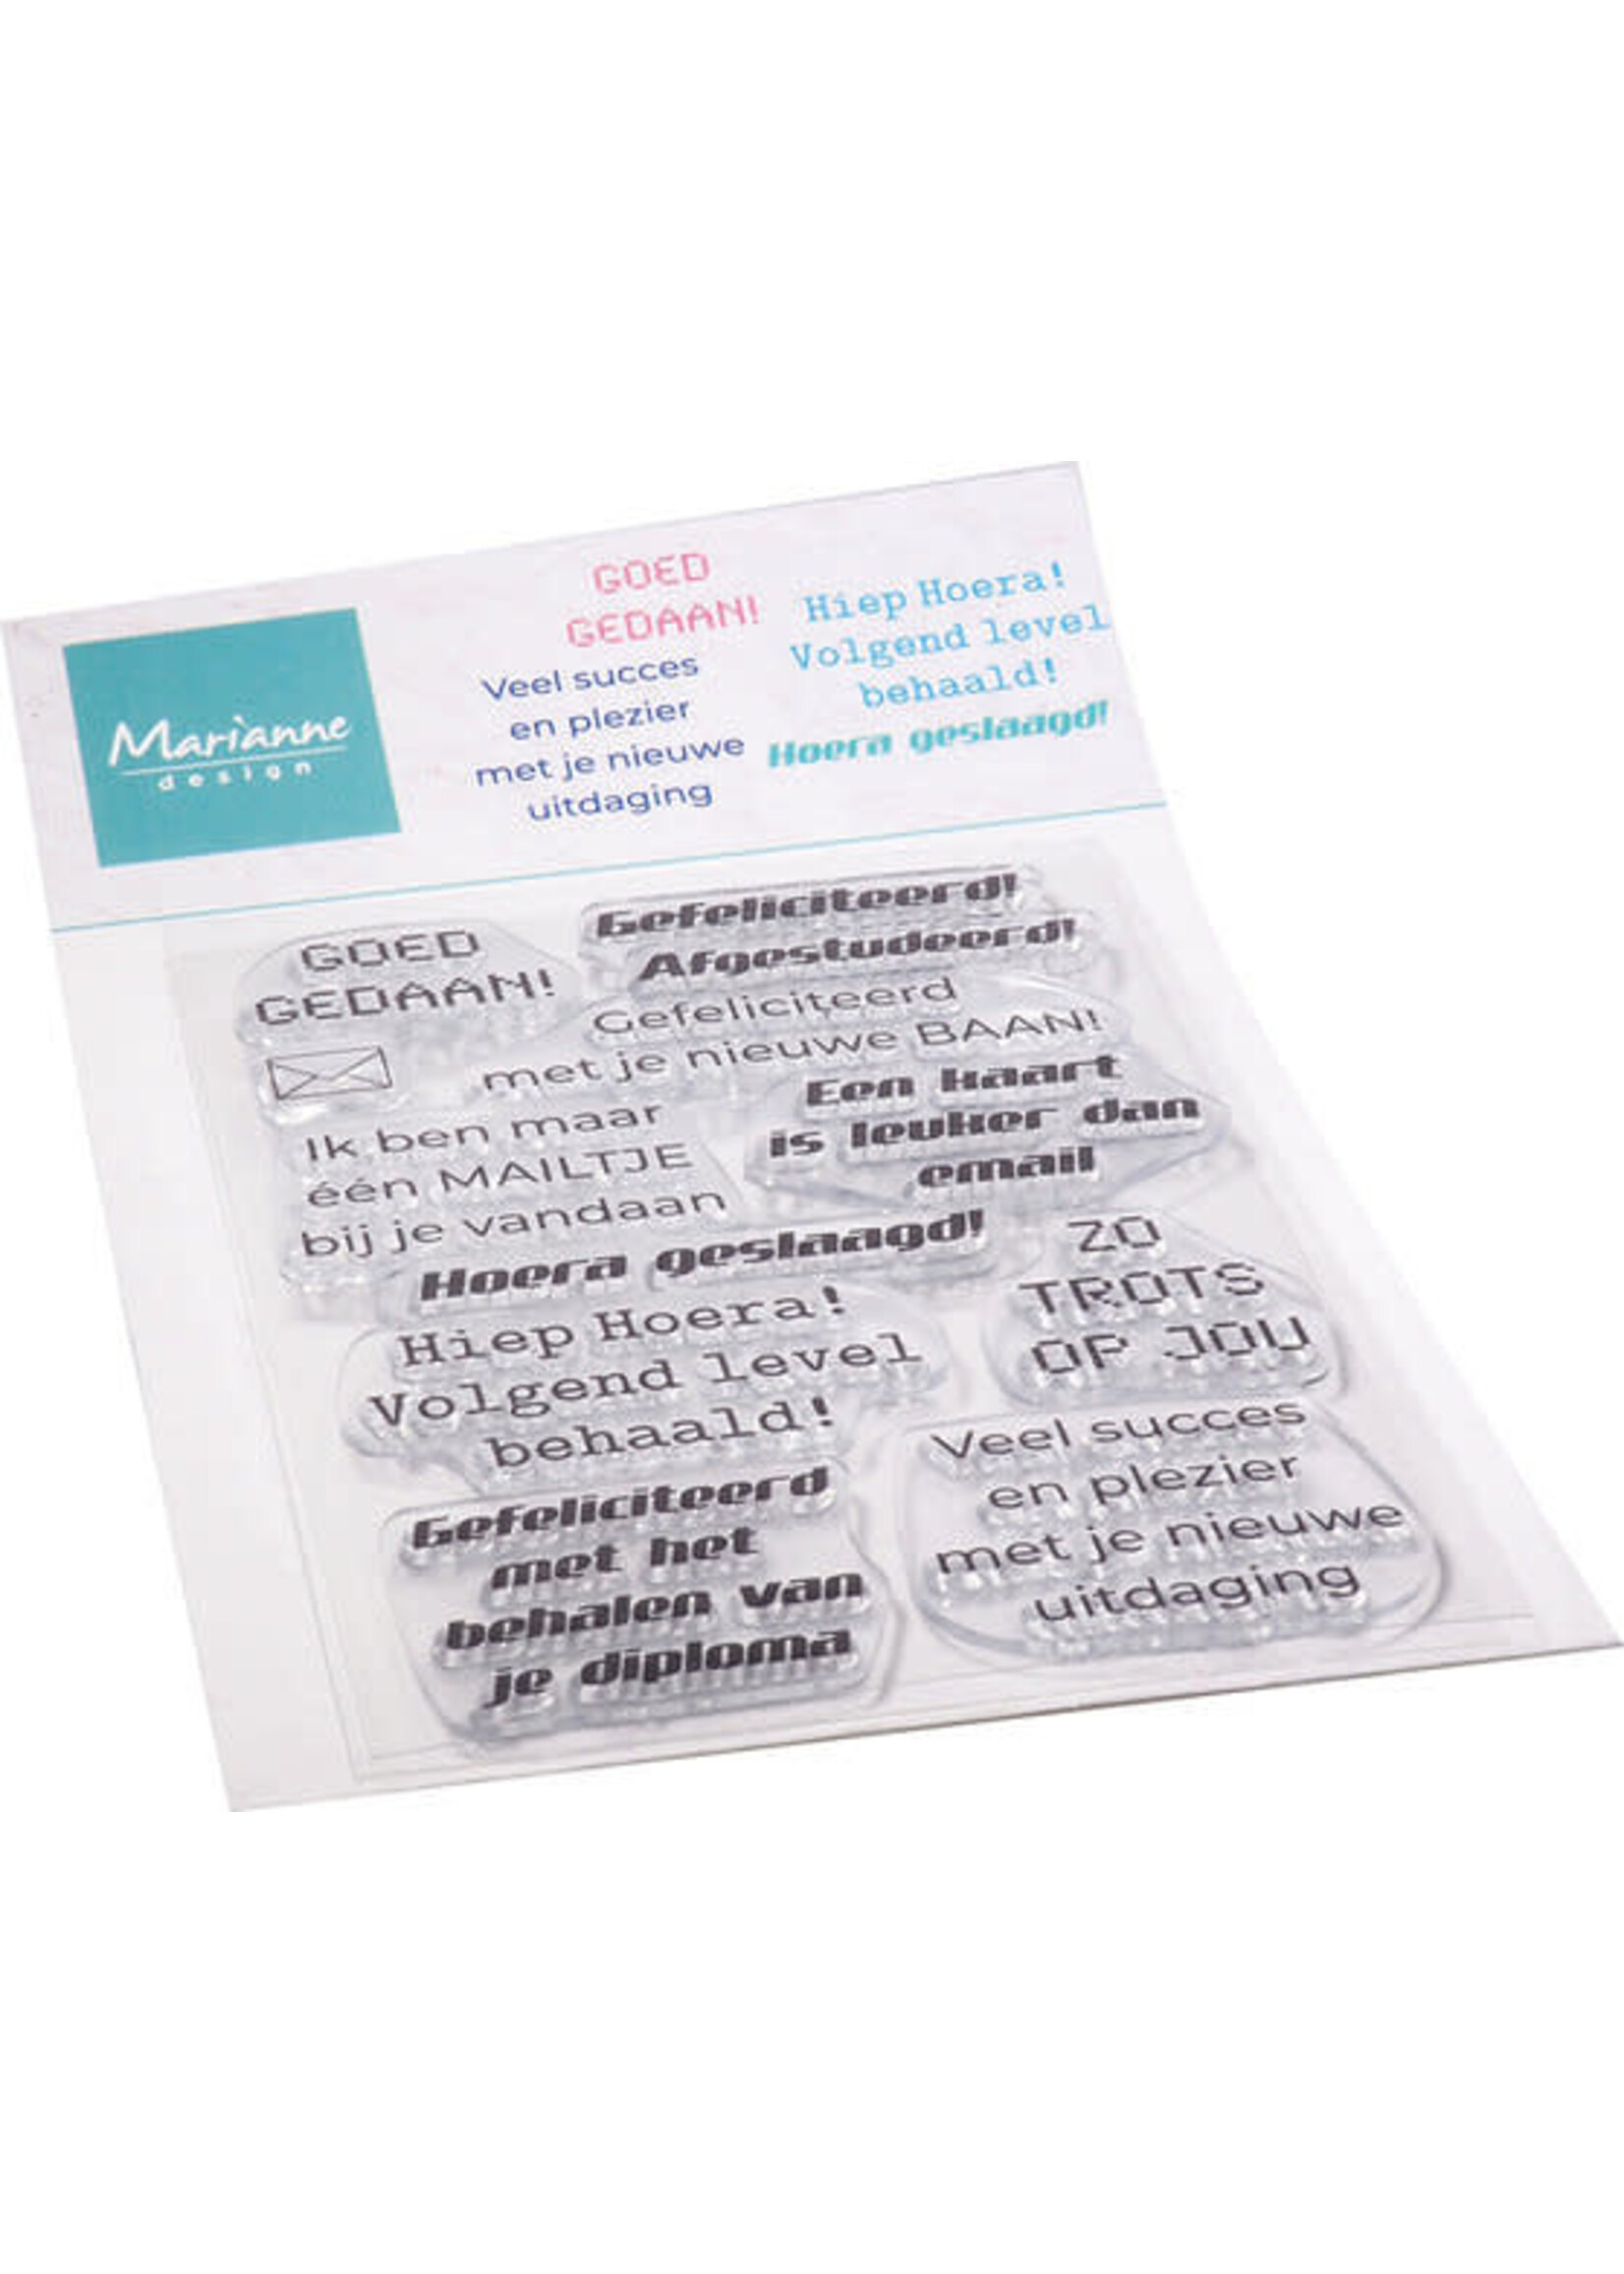 Marianne
design
GOED
GEDAAN!
Veel succes
en plezier
met je nieuwe
uitdaging
Hiep Hoera!
Volgend level
behaald!
Hoera geslaagd!
GOED
GEDAAN!
Gefeliciteerd!
Afgestudeerd!
Gefeliciteerd
met je nieuwe BAAN!
Een kaart
is leuker dan
email
Ik ben maar
één MAILTJE
bij je vandaan
Hoera geslaagd!
ZO
TROTS
OP JOU
Hiep Hoera!
Volgend level
behaald!
Gefeliciteerd
met het
behalen van
je diploma
Veel succes
en plezier
met je nieuwe
uitdaging